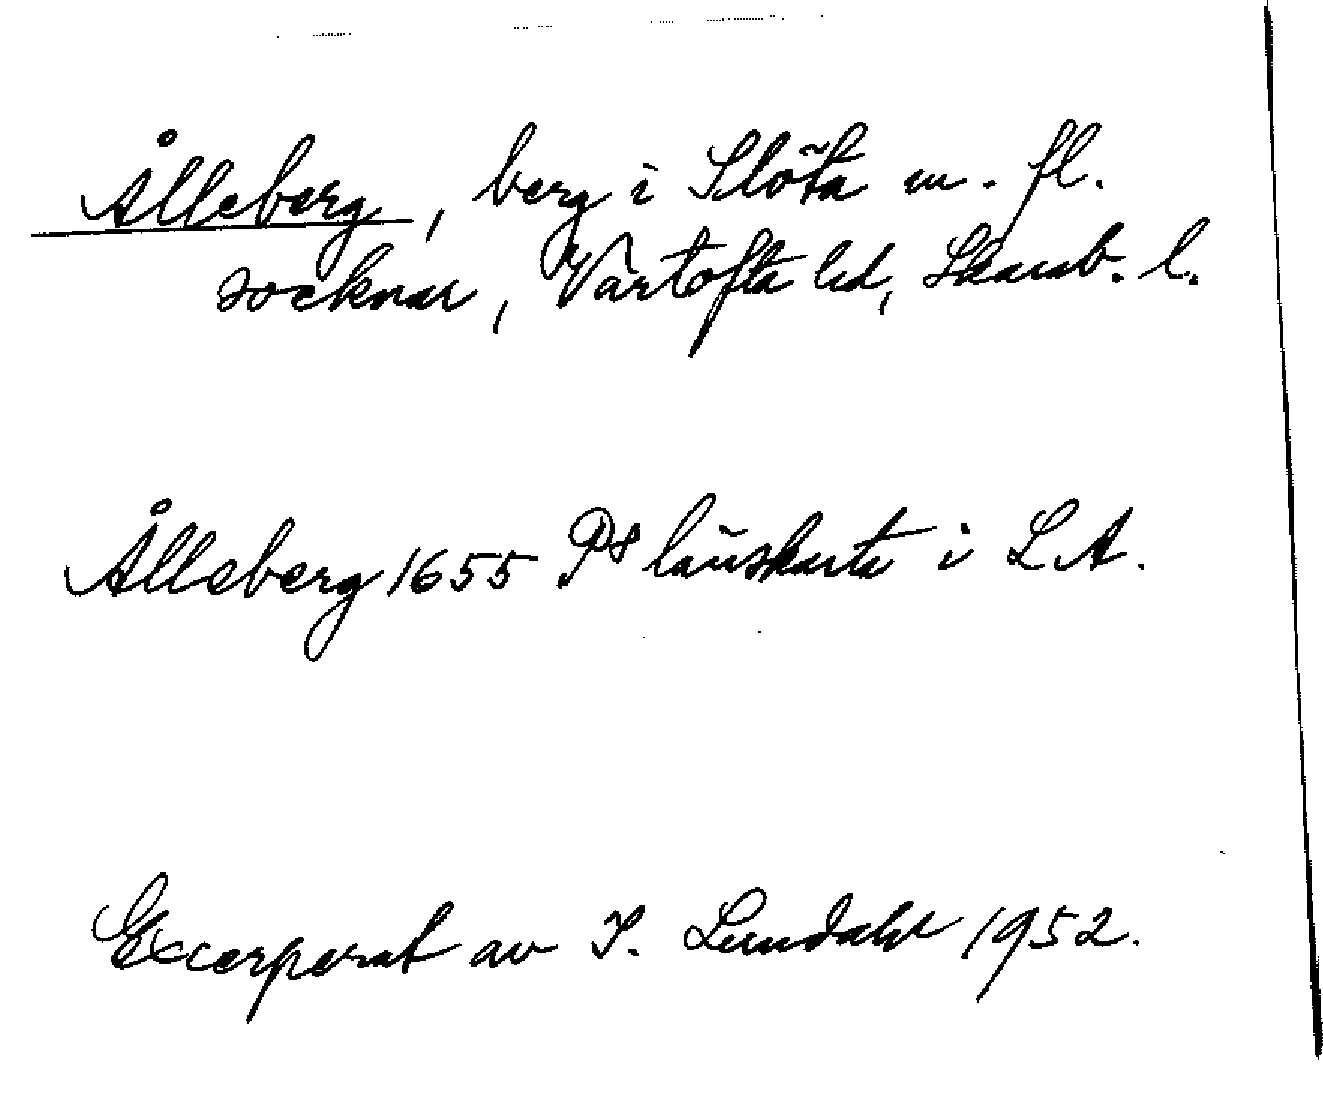 Ålleberg, berg i Slöta m. fl.
socknar, Vartofta hd, Skarab. l.
Ålleberg 1655 Ps länskarta i LA.
Excerperat av I. Lundahl 1952.